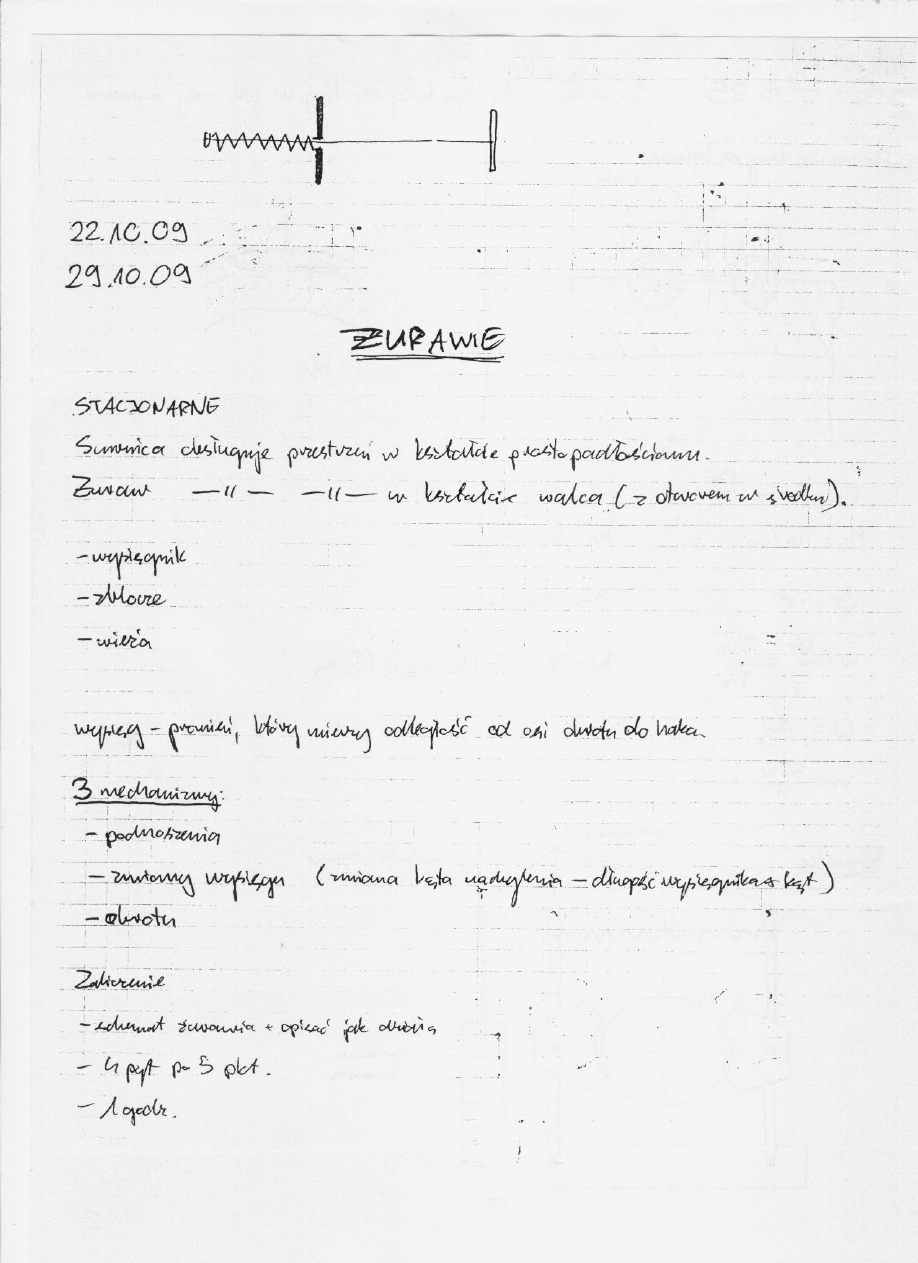 22.10.09
29.10.09
ŻURAWIE
STACJONARNE
Suwnica obsługuje przestrzeń w kształcie prostopadłościanu.
Żuraw —〃— —〃— w kształcie walca (z otworem w środku).
- wysięgnik
- zblocze
- wieża
wysięg - promień, który mierzy odległość od osi obrotu do haka.
3 mechanizmy:
- podnoszenia
- zmiany wysięgu (zmiana kąta nachylenia - długość wysięgnika + kąt)
- obrotu
Zaliczenie
- schemat żurawia + opisać jak działa
- 4 pyt po 5 pkt.
- 1 godz.